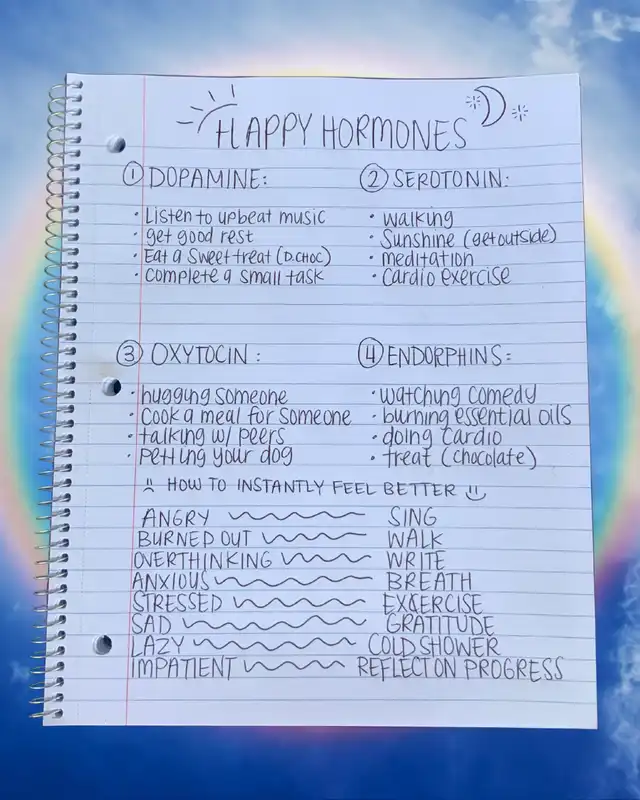 HAPPY HORMONES
① DOPAMINE:
• Listen to upbeat music
• get good rest
• Eat a sweet treat (D.CHOC)
• complete a small task
② SEROTONIN:
• walking
• Sunshine (get outside)
• meditation
• cardio exercise
③ OXYTOCIN:
• hugging someone
• Cook a meal for someone
• talking w/ peers
• petting your dog
④ ENDORPHINS:
• watching comedy
• burning essential oils
• doing cardio
• treat (chocolate)
HOW TO INSTANTLY FEEL BETTER
ANGRY SING
BURNED OUT WALK
OVERTHINKING WRITE
ANXIOUS BREATH
STRESSED EXCERCISE
SAD GRATITUDE
LAZY COLD SHOWER
IMPATIENT REFLECT ON PROGRESS